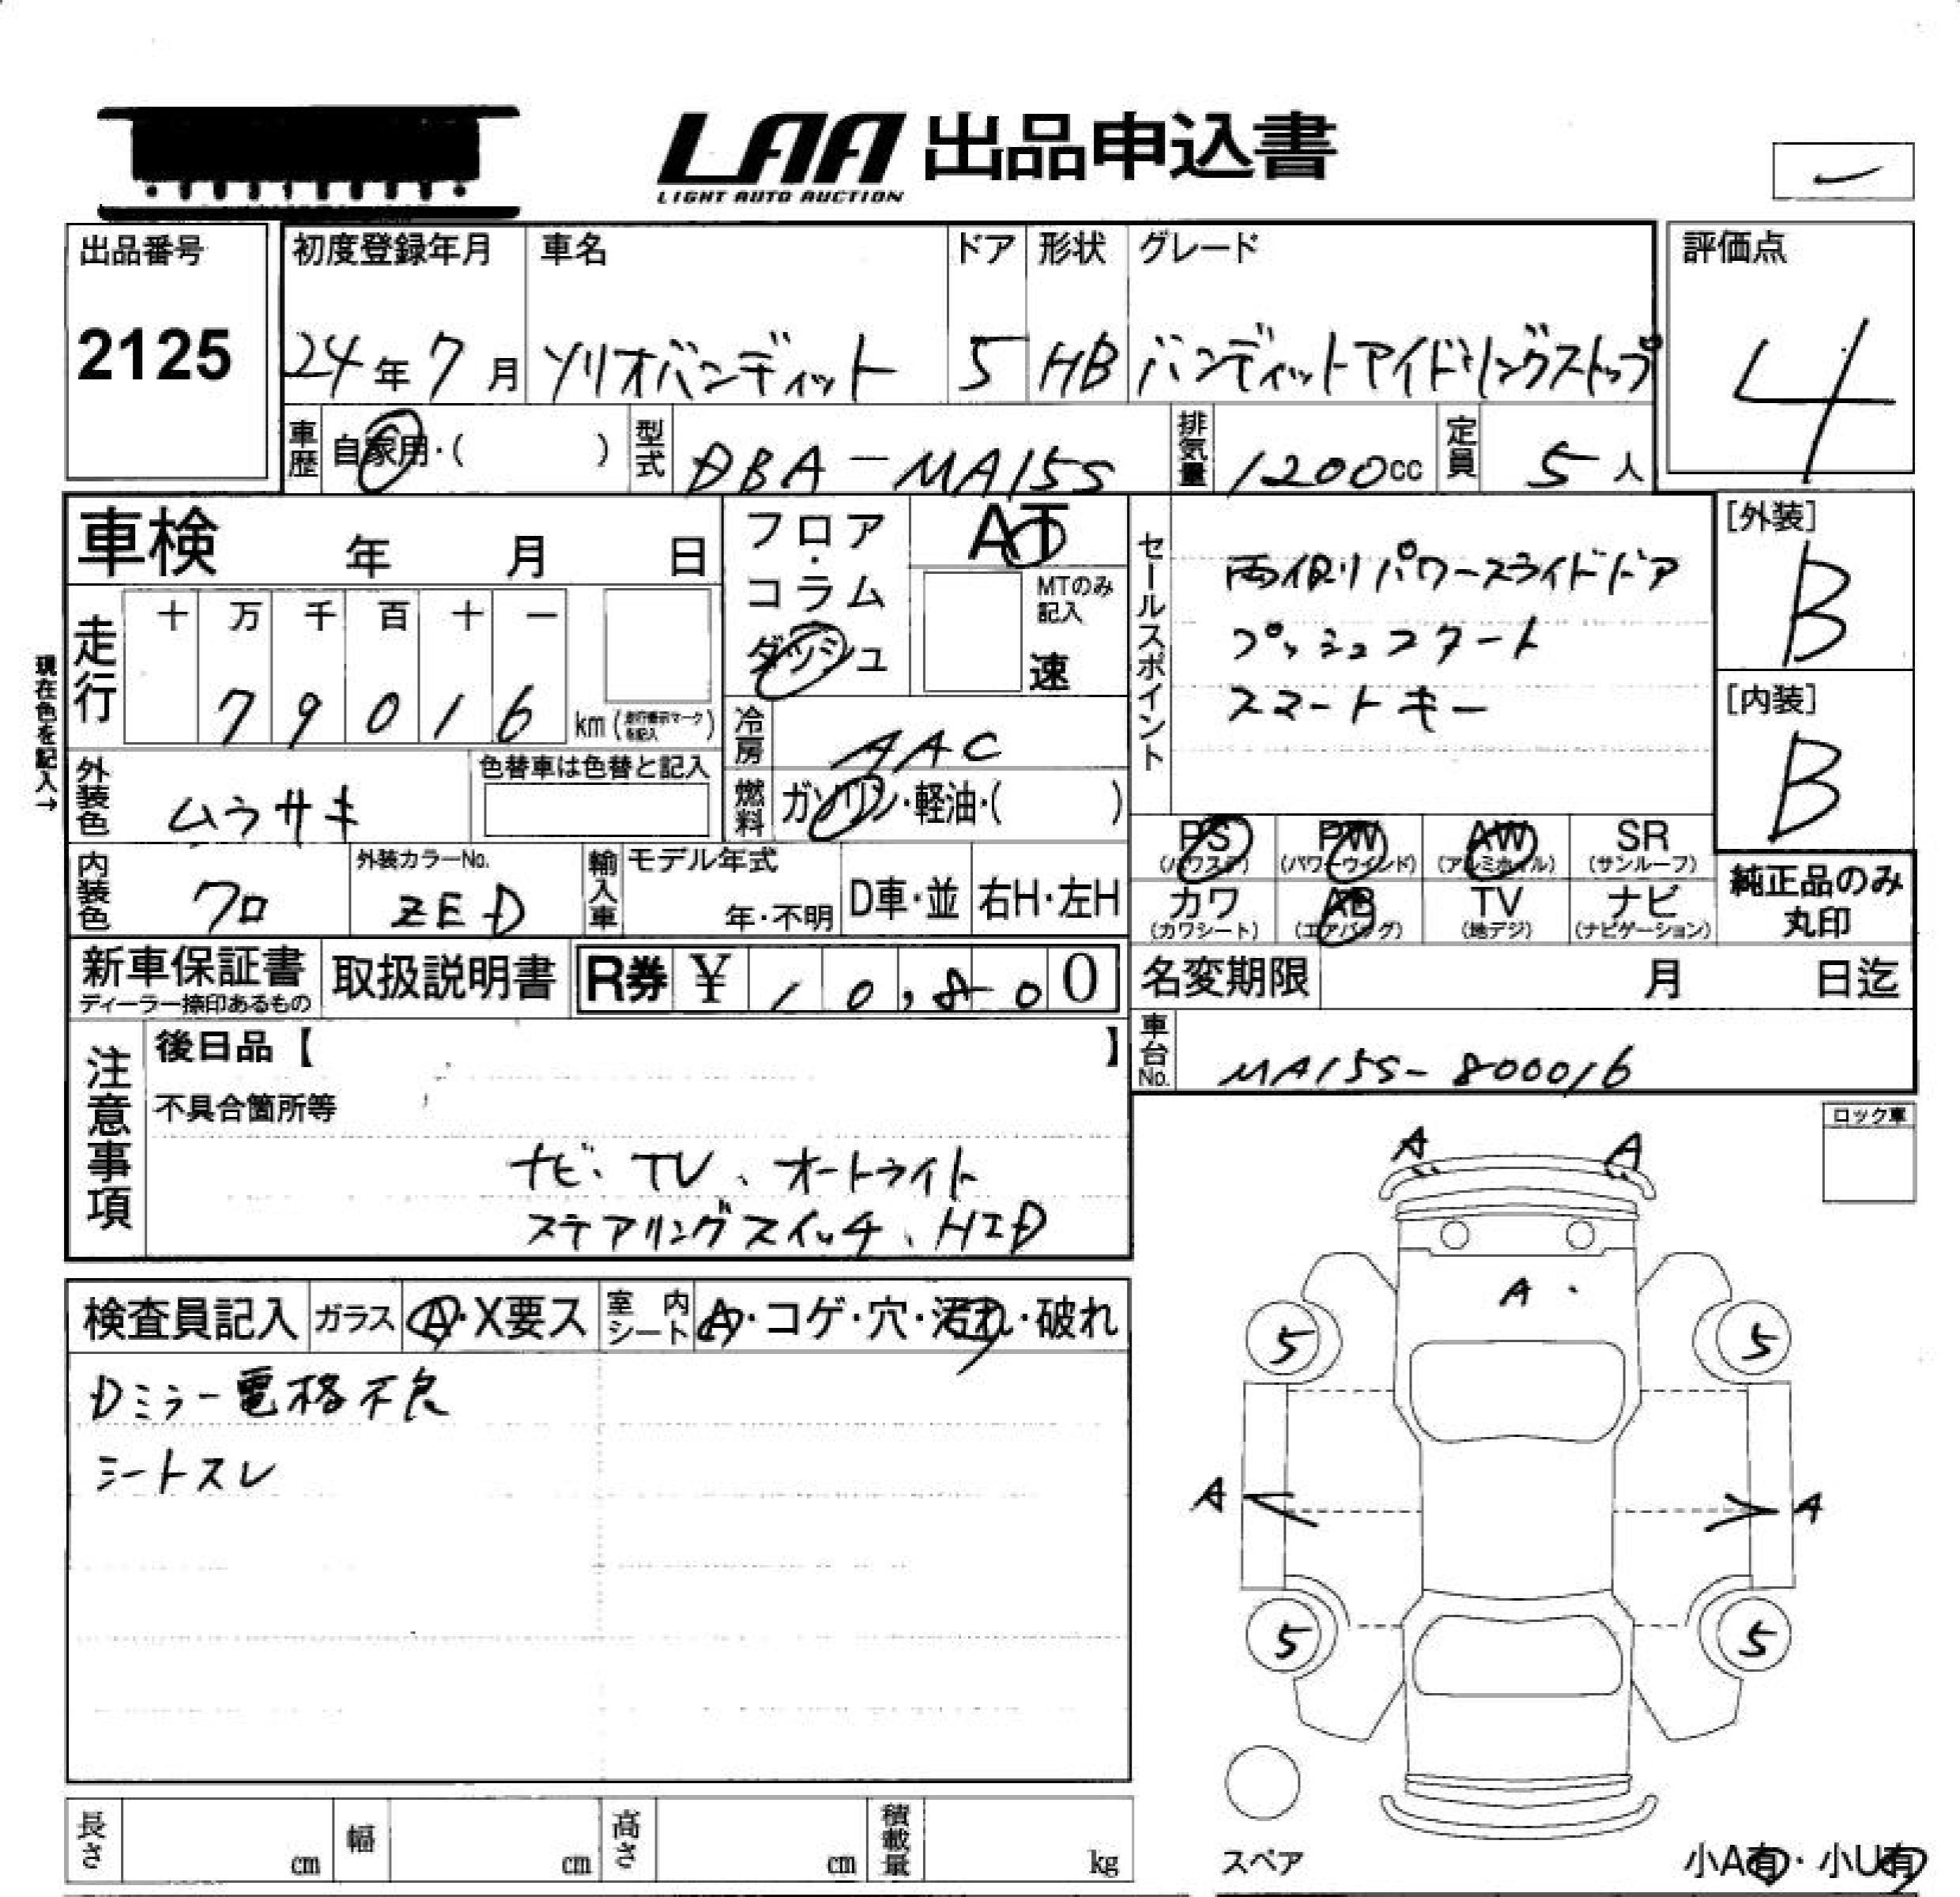 LAA 出品申込書
LIGHT AUTO AUCTION
出品番号
2125
初度登録年月
24年7月
車名
ソリオバンディット
ドア
5
形状
HB
グレード
バンディットアイドリングストップ
評価点
4
車歴
自家用・( )
型式
DBA-MA15S
排気量
1200cc
定員
5人
車検 年 月 日
フロア・コラム
ダッシュ
AT
MTのみ記入
速
セールスポイント
両側パワースライドドア
プッシュスタート
スマートキー
[外装]
B
[内装]
B
現在色を記入→
走行
十 万 千 百 十 一
7 9 0 1 6 km(走行表示マークを記入)
冷房
AAC
外装色
ムラサキ
色替車は色替と記入
燃料
ガソリン・軽油・( )
PS (パワステ)
PW (パワーウインド)
AW (アルミホイル)
SR (サンルーフ)
カワ (カワシート)
AB (エアバッグ)
TV (地デジ)
ナビ (ナビゲーション)
純正品のみ
丸印
内装色
クロ
外装カラーNo.
ZED
輸入車
モデル年式
年・不明
D車・並
右H・左H
新車保証書
ディーラー捺印あるもの
取扱説明書
R券 ¥ 10,800
名変期限 月 日迄
車台No.
MA15S-800016
注意事項
後日品【 】
不具合箇所等
ナビ、TV、オートライト
ステアリングスイッチ、HID
ロック車
検査員記入
ガラス
A・X要ス
室内シート
A・コゲ・穴・汚れ・破れ
Dミラー電格不良
シートスレ
A A
A
5 5
A A
5 5
スペア
小A有・小U有
長さ cm
幅 cm
高さ cm
積載量 kg